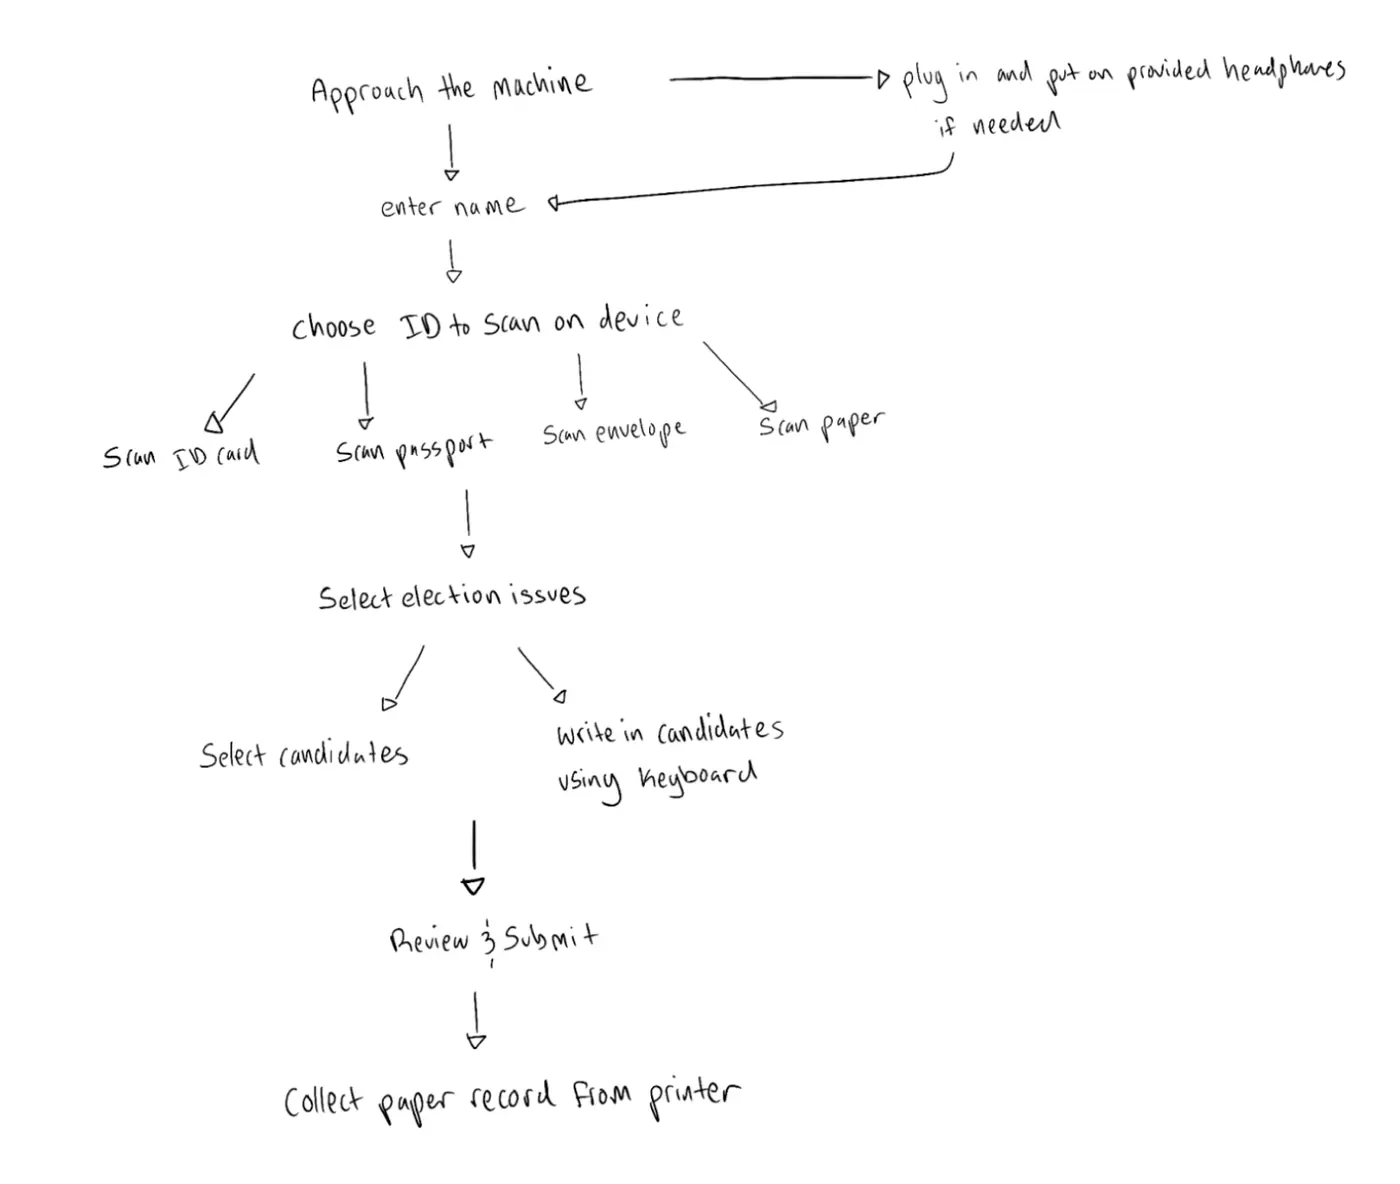 Approach the machine
plug in and put on provided headphones
if needed
enter name
Choose ID to scan on device
Scan ID card
Scan passport
Scan envelope
Scan paper
Select election issues
Select candidates
write in candidates
using keyboard
Review & Submit
Collect paper record from printer